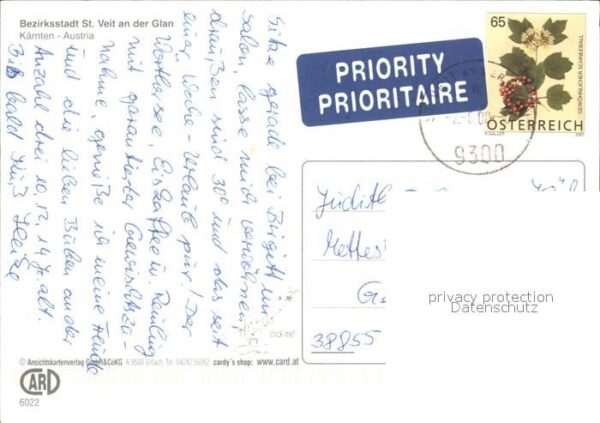 Bezirksstadt St. Veit an der Glan
Kärnten - Austria
Sitze gerade bei Birgitt im
Salon, lasse mich verwöhnen,
draußen sind 30° und das seit
einer Woche - Urlaub pur! Der
Wörthersee, Eiskaffee u. Reinling
mit garantierter Gewichtszu-
nahme, genieße ich meine Freude
und die lieben Buben an der
Anzahl drei 10, 12, 14 J. alt.
Bis bald
PRIORITY
PRIORITAIRE
65
GEWÖHNLICHER SCHNEEBALL
ÖSTERREICH
9300
Judith
38855
privacy protection
Datenschutz
click me!
© Ansichtskartenverlag GmbH&CoKG A 9500 Villach, Tel. 04242 cardy's shop: www.card.at
CARD
6022